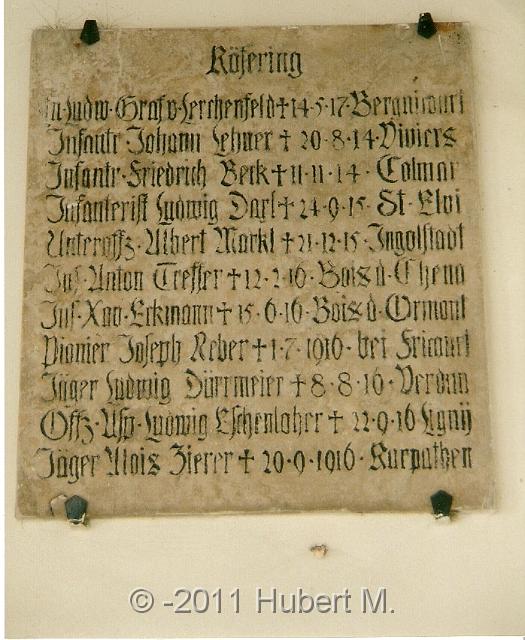 Köfering
Ludw. Graf v. Lerchenfeld † 14·5·17· Bergnicourt
Infantr. Johann Lehner † 20·8·14· Viviers
Infantr. Friedrich Berk † 11·11·14 · Colmar
Infanterist Ludwig Darl † 24·9·15· St. Eloi
Unteroffz. Albert Markl † 21·12·15· Ingolstadt
Inf. Anton Treffer † 12·2·16· Bois d. Chena
Inf. Xav. Eckmann † 15·6·16· Bois d. Ormont
Pionier Joseph Reber † 1·7·1916· bei
Jäger Ludwig Dürrmeier † 8·8·16· Verdun
Offz. Asp. Ludwig Eschenloher † 22·9·16 Ligny
Jäger Alois Zierer † 20·9·1916· Karpathen
© -2011 Hubert M.